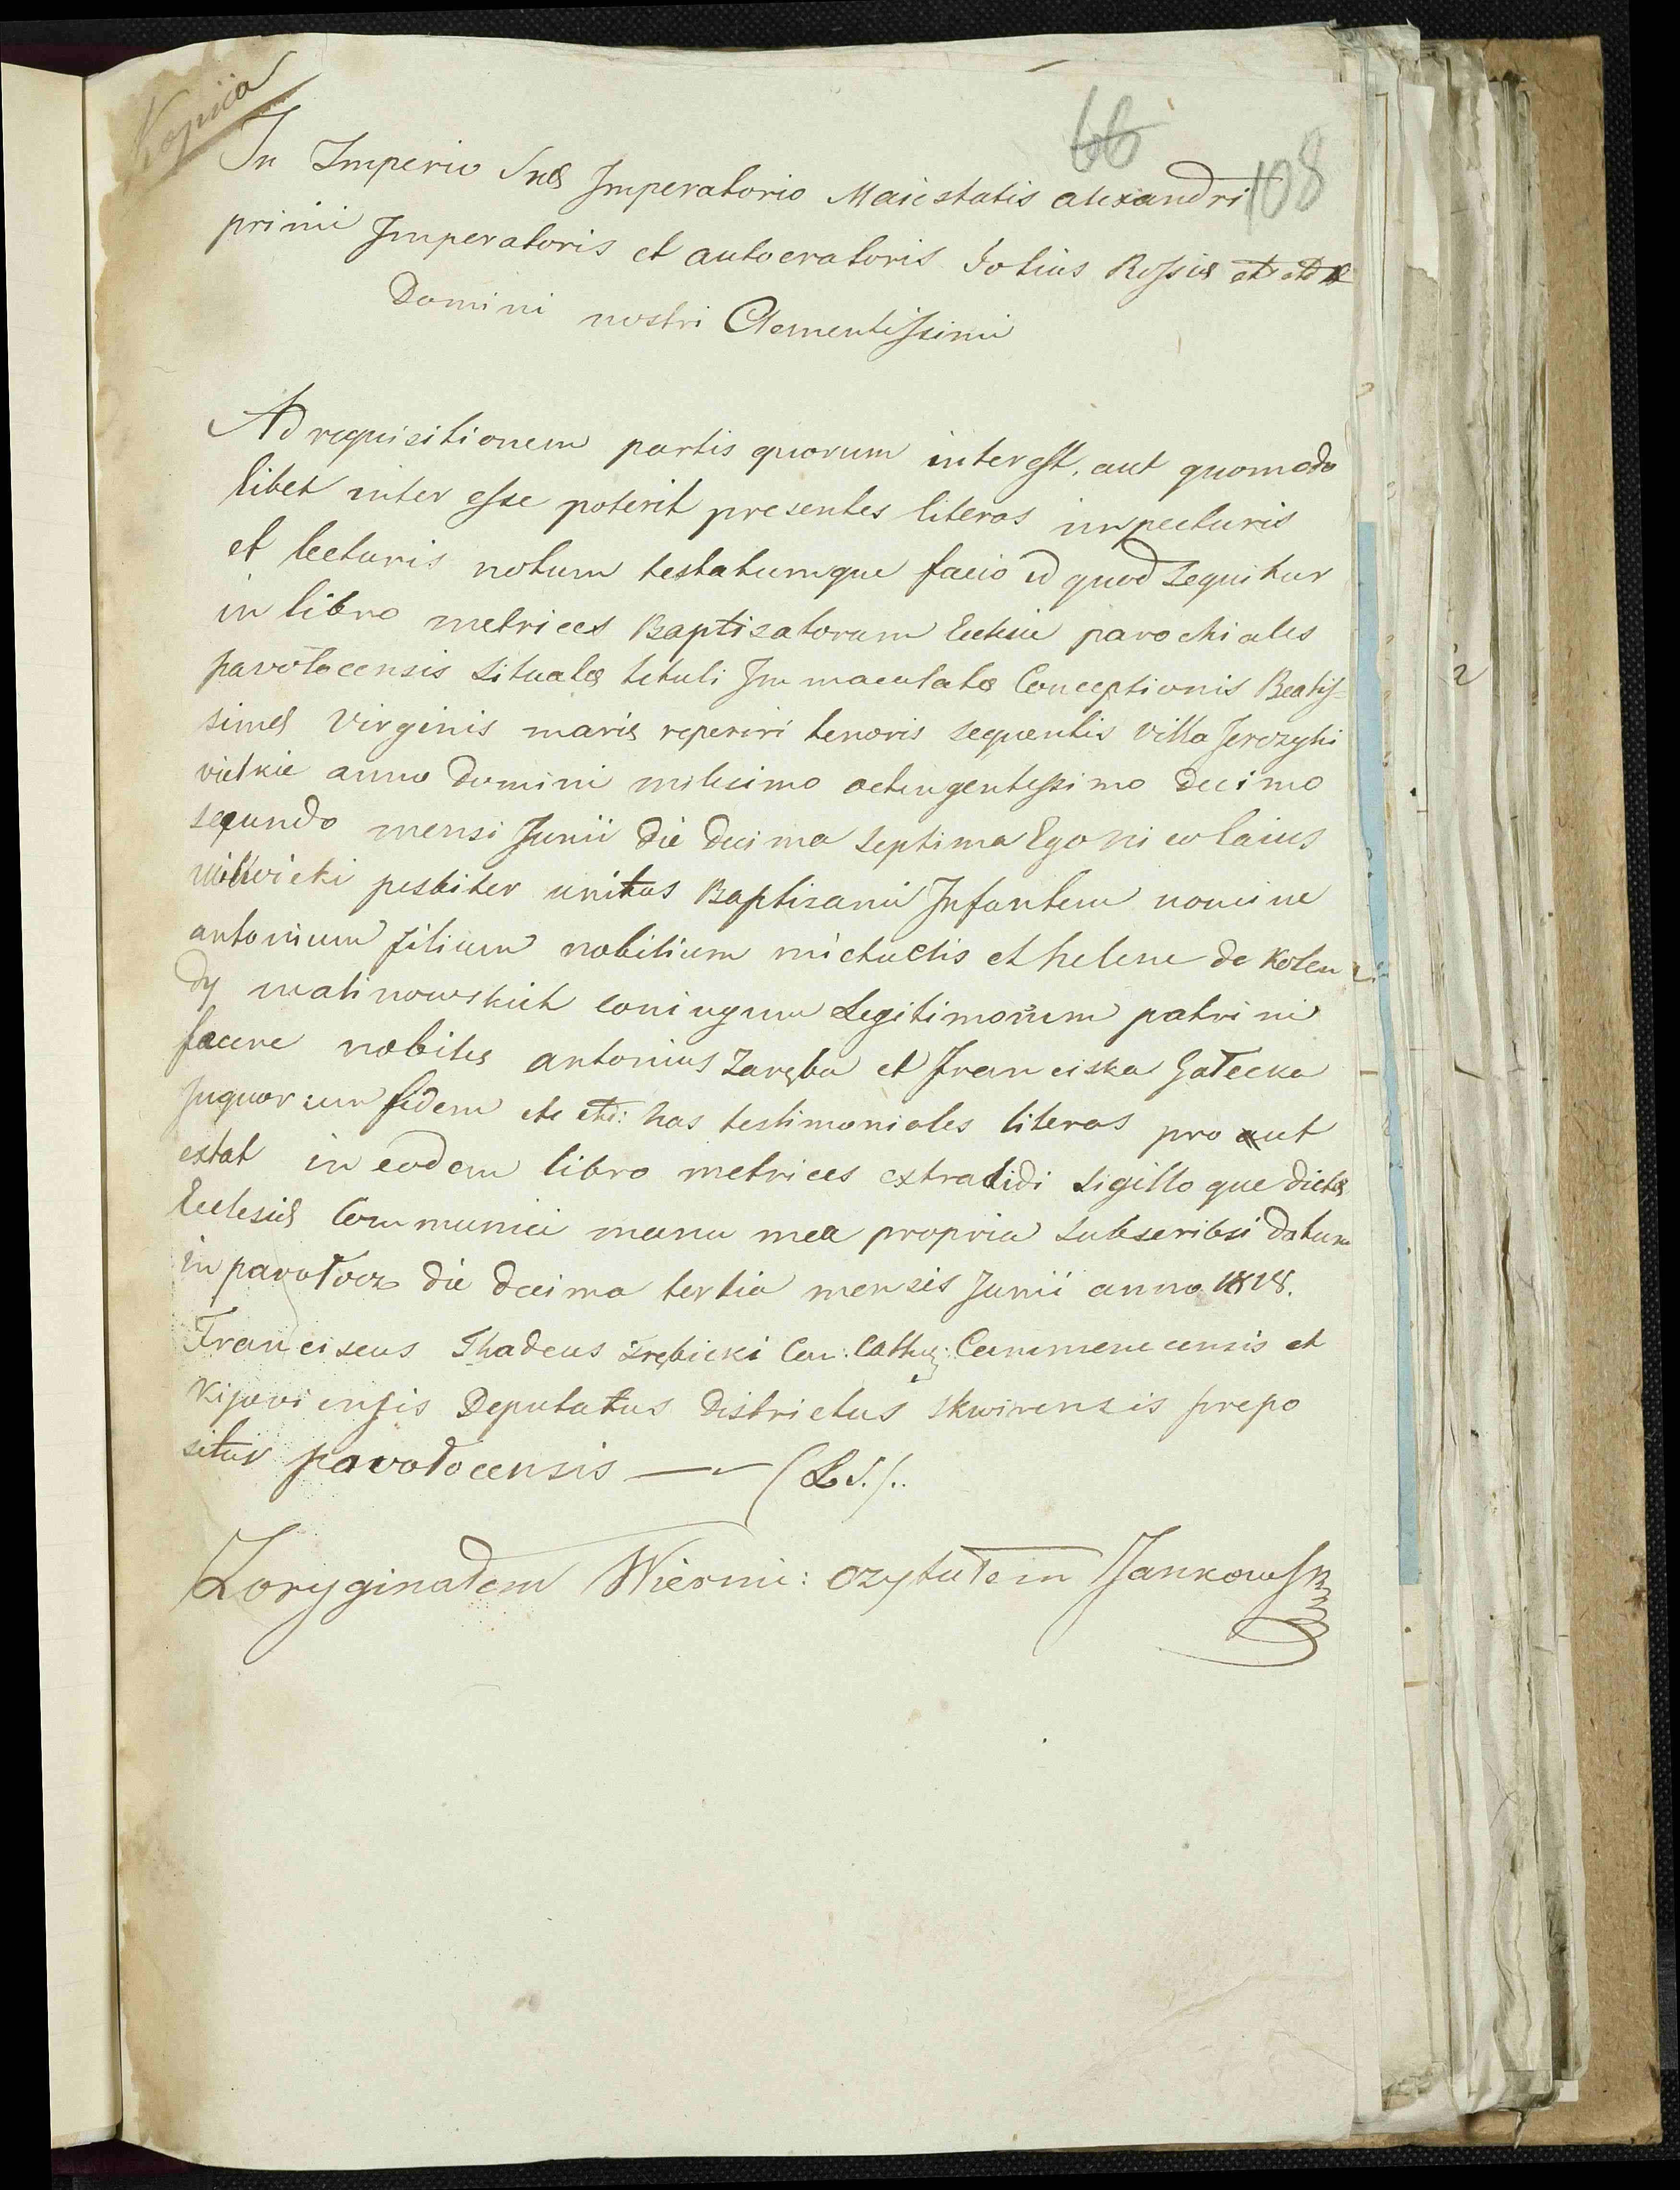 Kopiia
66
108
In Imperio Suæ Imperatorio Maiestatis alexandri
primi Imperatoris et autocratoris Totius Rossiæ etc etc
Domini nostri Clementissimi
Ad requisitionem partis quorum interest, aut quomodo
libet inter esse poterit presentes literas inspecturis
et lecturis notum testatumque facio id quod sequitur
in libro metrices Baptisatorum Eclesie parochiales
pavołocensis situatæ tituli Immaculatæ Conceptionis Beatis=
simæ Virginis mariæ reperiri tenoris sequentis Villa Jerczyki
vielkie anno Domini milesimo octingentessimo Decimo
secundo mensi Junii die decima septima Ego nicolaius
presbiter unitus Baptisavii Infantem nomine
antonium filium nobilium michaelis et helene de Kolen
dy malinowskich coniugum Legitimorum patrini
fuere nobiles antonius Zaręba et Franciska Gałecka
Inquorum fidem etc etc: has testimoniales literas pro aut
extat in eodem libro metrices extradidi sigillo que dictæ
Eclesiæ Communivi manu mea propria subscribsi datum
in pavołocz die decima tertia mensis Junii anno 1818.
Franciscus Thadeus Trębicki Can: Cathe: Cammenecensis et
Kijoviensis Deputatus Districtus skwirensis prepo
situs pavołocensis — (L S.)..
Zoryginałem Wiernie: czytałem Jankowski
2